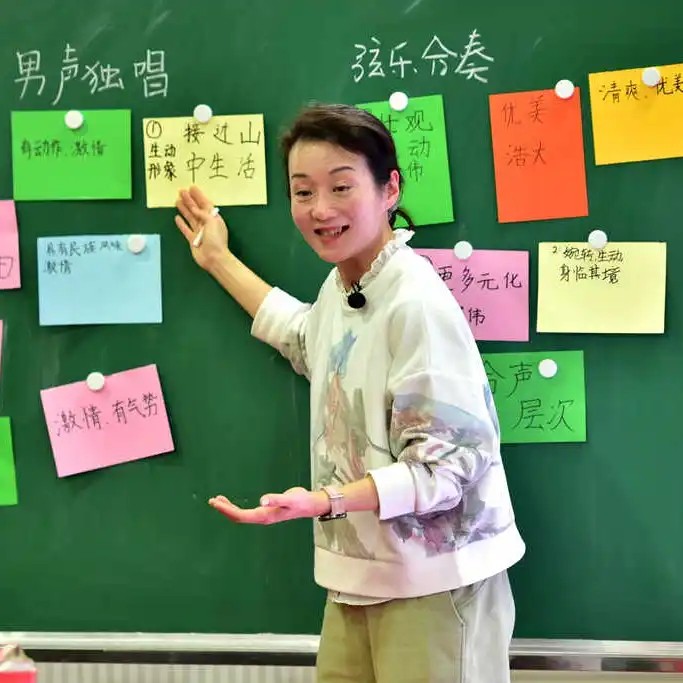 男声独唱
弦乐分奏
有动作、激情
①接过山
生动
形象
中生活
壮观
动
伟
优美
浩大
清爽、优美
具有民族风味
激情
更多元化
伟
2 婉转、生动
身临其境
激情、有气势
合声
层次